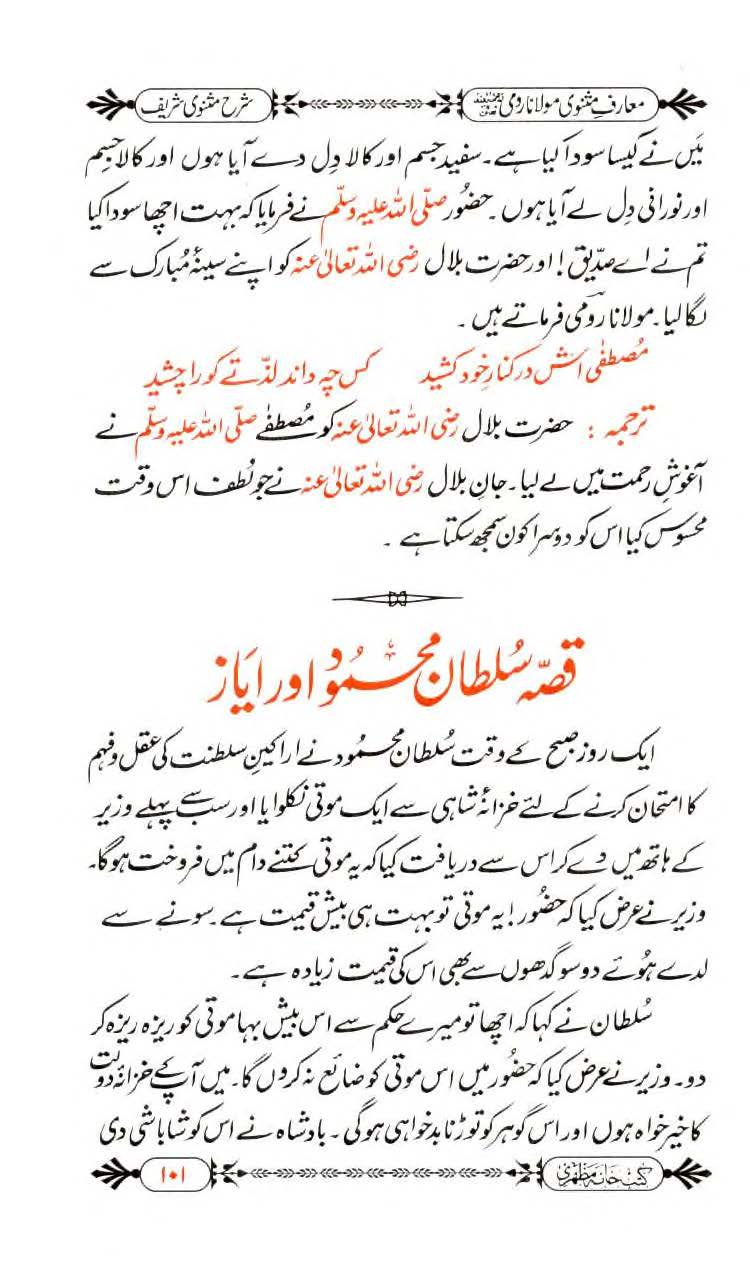 معارفِ مثنوی مولانا رومی
شرح مثنوی شریف
مَیں نے کیسا سودا کیا ہے۔ سفید جسم اور کالا دِل دے آیا ہوں اور کالا جسم
اور نورانی دِل لے آیا ہوں۔ حضُور صلّی اللہ علیہ وسلّم نے فرمایا کہ بہت اچھا سودا کیا
تم نے اے صدّیق! اور حضرت بلال رضی اللہ تعالیٰ عنہ کو اپنے سینۂ مُبارک سے
لگا لیا۔ مولانا رومیؒ فرماتے ہیں ۔
مُصطفٰی اَش در کنارِ خود کشید کس چہ داند لذّتے کو را چشید
ترجمہ : حضرت بلال رضی اللہ تعالیٰ عنہ کو مُصطفٰے صلّی اللہ علیہ وسلّم نے
آغوشِ رحمت میں لے لیا۔ جانِ بلال رضی اللہ تعالیٰ عنہ نے جو لُطف اس وقت
محسوس کیا اس کو دوسرا کون سمجھ سکتا ہے ۔
قصّہ سُلطان محمُود اور ایَاز
ایک روز صبح کے وقت سُلطان محمُود نے اراکینِ سلطنت کی عقل و فہم
کا امتحان کرنے کے لئے خزانۂ شاہی سے ایک موتی نکلوایا اور سب سے پہلے وزیر
کے ہاتھ میں دے کر اس سے دریافت کیا کہ یہ موتی کتنے دام میں فروخت ہوگا۔
وزیر نے عرض کیا کہ حضُور! یہ موتی تو بہت ہی بیش قیمت ہے۔ سونے سے
لدے ہُوئے دو سو گدھوں سے بھی اس کی قیمت زیادہ ہے۔
سُلطان نے کہا کہ اچھا تو میرے حکم سے اس بیش بہا موتی کو ریزہ ریزہ کر
دو۔ وزیر نے عرض کیا کہ حضُور میں اس موتی کو ضائع نہ کروں گا۔ میں آپ کے خزانۂ دولت
کا خیر خواہ ہوں اور اس گوہر کو توڑنا بدخواہی ہوگی۔ بادشاہ نے اس کو شاباشی دی
کتب خانہ مظہری
۱۰۱